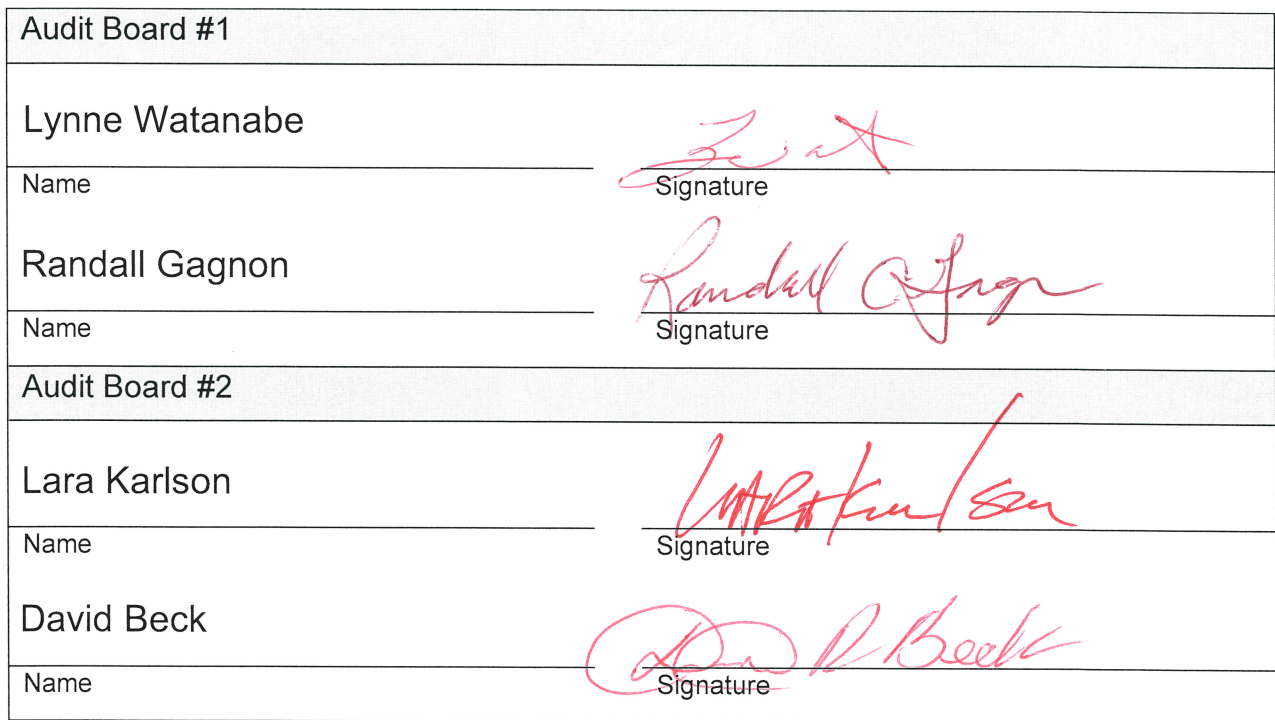 Audit Board #1
Lynne Watanabe
Name Signature
Randall Gagnon Randall
Name Signature
Audit Board #2
Lara Karlson Lara Karlson
Name Signature
David Beck R Beck
Name Signature